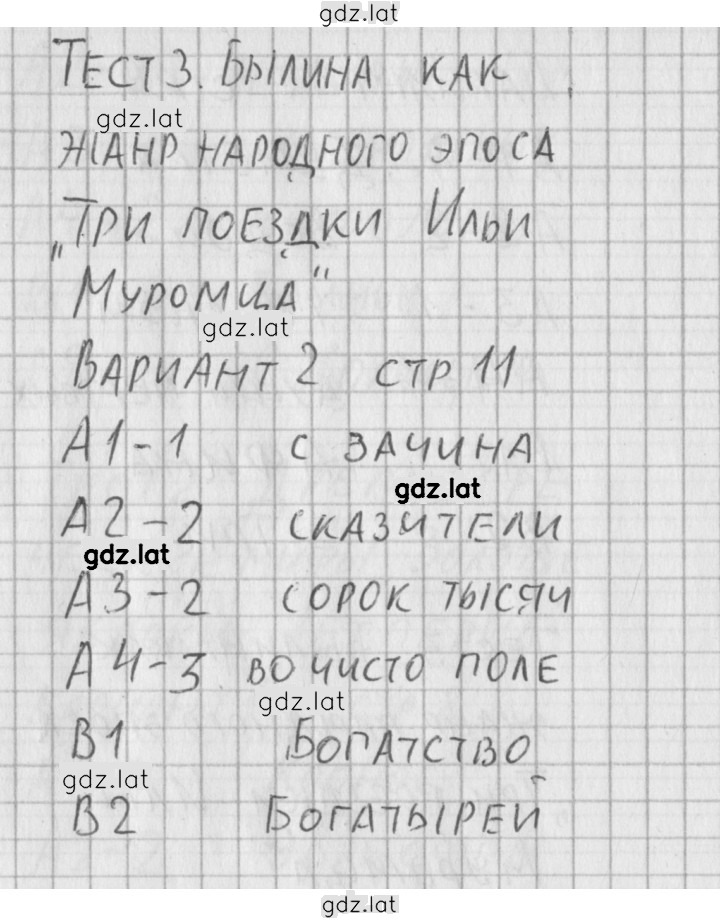 gdz.lat
Тест 3. Былина как
gdz.lat
жанр народного эпоса
„Три поездки Ильи
Муромца“
gdz.lat
Вариант 2 стр 11
А1-1 с зачина
gdz.lat
А2-2 сказители
gdz.lat
А3-2 сорок тысяч
А4-3 во чисто поле
gdz.lat
В1 Богатство
gdz.lat
В2 Богатырей
gdz.lat